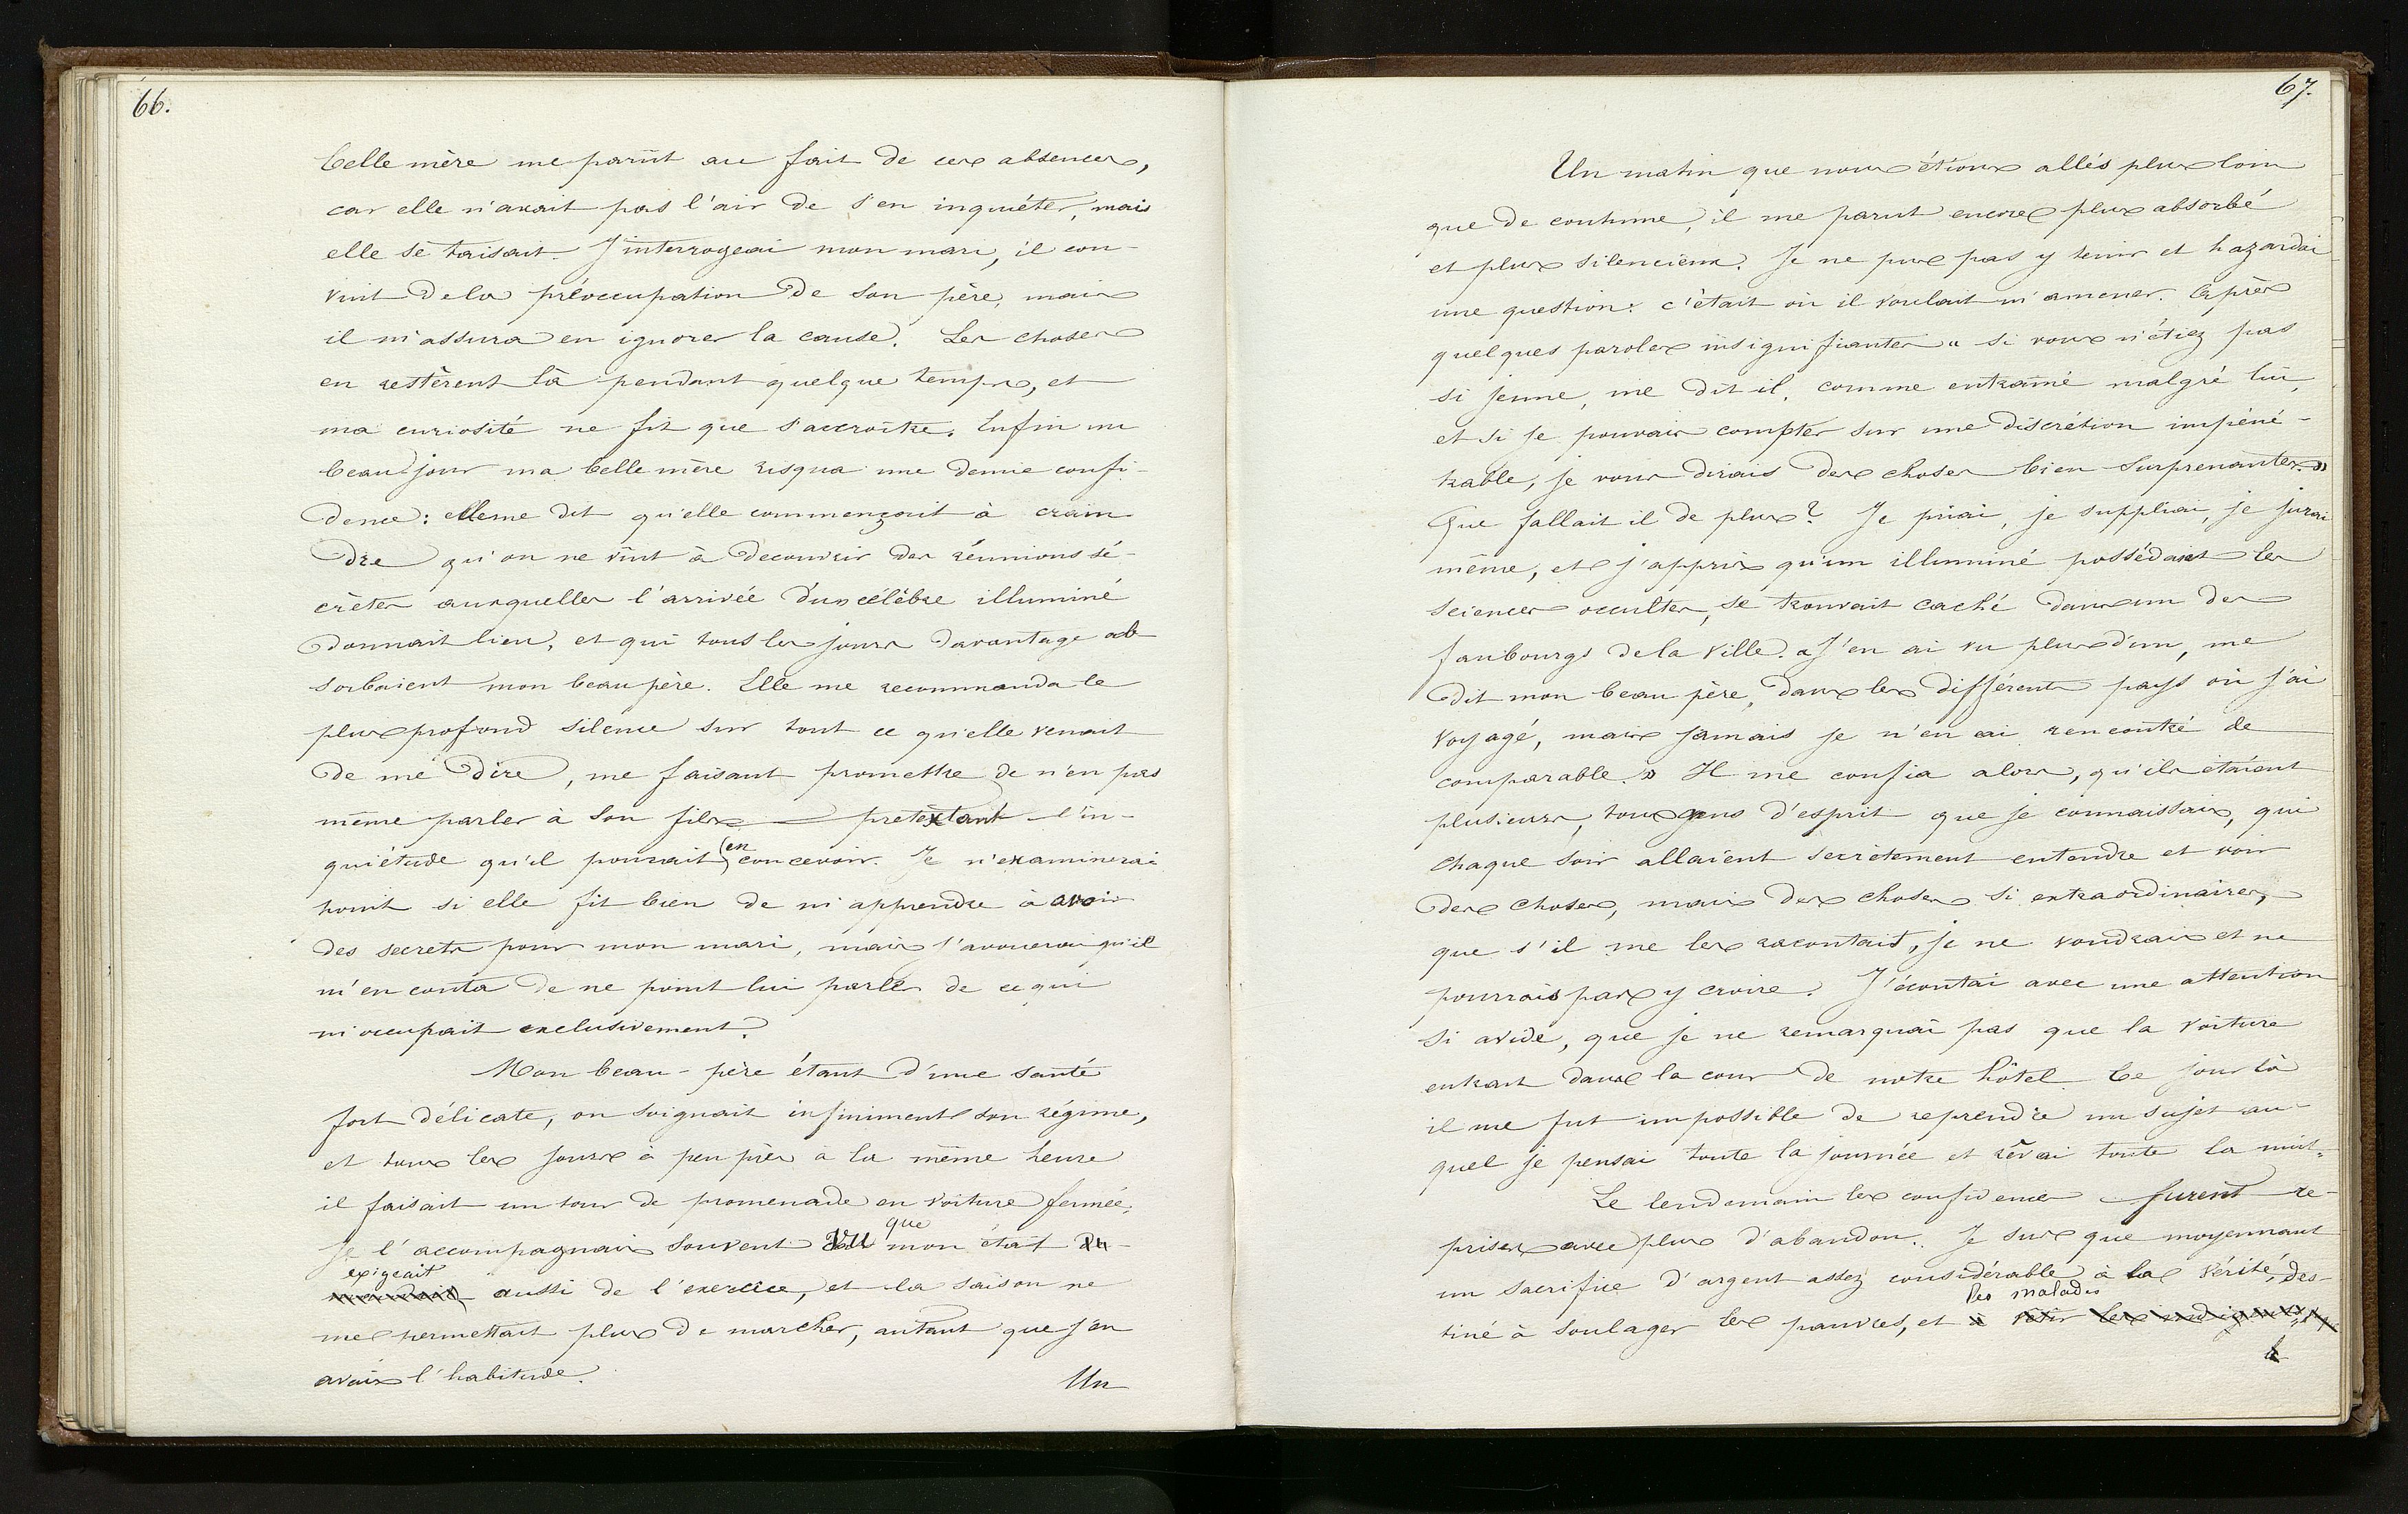 66.
belle mère me parût au fait de ces absences,
car elle n'avait pas l'air de s'en inquiéter, mais
elle se taisait. J'interrogeai mon mari, il con-
vint de la préoccupation de son père, mais
il m'assura en ignorer la cause. Les choses
en restèrent là pendant quelque temps, et
ma curiosité ne fit que s'accroître. Enfin un
beau jour ma belle mère risqua une demie confi-
dence: elle me dit qu'elle commençait à crain
dre qu'on ne vînt à decouvrir des réunions sé-
crètes auxquelles l'arrivée d'un célèbre illuminé
donnait lieu, et qui tous les jours davantage ab
sorbaient mon beau père. Elle me recommanda le
plus profond silence sur tout ce qu'elle venait
de me dire, me faisant promettre de n'en pas
même parler à son fils — pretextant l'in-
quiétude qu'il pourrait en concevoir. Je n'examinerai
point si elle fit bien de m'apprendre à avoir
des secrets pour mon mari, mais j'avouerai qu'il
m'en couta de ne point lui parler de ce qui
m'occupait exclusivement.
Mon beau-père étant d'une santé
fort délicate, on soignait infiniment son régime,
et tous les jours à peu près à la même heure
il faisait un tour de promenade en voiture fermée.
Je l'accompagnais souvent Vu que mon état
exigeait aussi de l'exercice, et la saison ne
me permettait plus de marcher, autant que j'en
avais l'habitude.
Un
67.
Un matin que nous étions allés plus loin
que de coutume, il me parut encore plus absorbé
et plus silencieux. Je ne pus pas y tenir et hazardai
une question: c'était où il voulait m'amener. Après
quelques paroles insignifiantes « si vous n'étiez pas
si jeune, me dit il, comme entraîné malgré lui,
et si je pouvais compter sur une discrétion impéné-
trable, je vous dirais des choses bien surprenantes. »
Que fallait il de plus? Je priai, je suppliai, je jurai
même, et j'appris qu'un illuminé possédant les
sciences occultes, se trouvait caché dans un des
faubourgs de la ville. « J'en ai vu plus d'un, me
dit mon beau père, dans les différents pays où j'ai
voyagé, mais jamais je n'en ai rencontré de
comparable. » Il me confia alors, qu'ils étaient
plusieurs, tous gens d'esprit que je connaissais, qui
chaque soir allaient secrètement entendre et voir
des choses, mais des choses si extraordinaires,
que s'il me les racontait, je ne voudrais et ne
pourrais pas y croire. J'écoutai avec une attention
si avide, que je ne remarquai pas que la voiture
entrait dans la cour de notre hôtel. Ce jour là
il me fut impossible de reprendre un sujet au-
quel je pensai toute la journée et rêvai toute la nuit.
Le lendemain les confidences furent re-
prises avec plus d'abandon. Je sus que moyennant
un sacrifice d'argent assez considérable à la vérité, des-
tiné à soulager les pauvres, et à vêtir les indigents, les malades